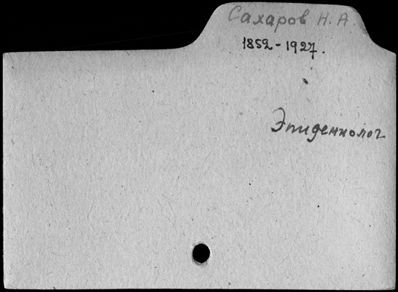 Сахаров Н. А.
1852-1927.
Эпидемиолог